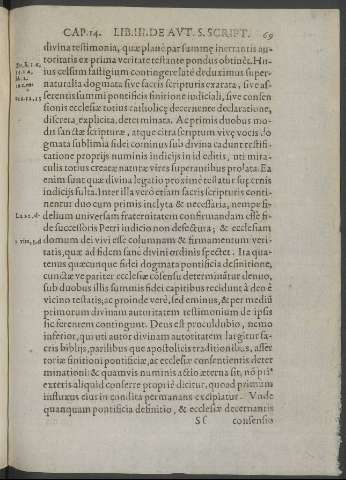 CAP. 14. LIB. III. DE AVT. S. SCRIPT. 69
diuina testimonia, quæ planè par summę inerrantis au-
toritatis ex prima veritate testante pondus obtinẽt. Hu-
ius celsum fastigium contingere latè deduximus super-
naturalia dogmata siue sacris scripturis exarata, siue as-
serentis summi pontificis finitione iudiciali, siue consen-
sionis ecclesiæ totius catholicę decernente declaratione,
discreta, explicita, determinata. Ac primis duobus mo-
dis sanctæ scripturæ, atque citra scriptum viuę vocis do
gmata sublimia fidei cominus sub diuina cadunt testifi-
catione proprijs numinis indicijs inibi editis, uti mira-
culis totius creatæ naturæ vires superantibus prolata. Ea
enim sunt quæ diuina legatio proximè testatur supernis
indicijs fulta. Inter illa verò etiam sacris scripturis conti-
nentur duo cum primis inclyta & necessaria, nempe fi-
Lu. 22. d. delium universam fraternitatem confirmandam esse fi-
de successoris Petri iudicio non defectura; & ecclesiam
domum dei viui esse columnam & firmamentum veri-
tatis, quæ ad fidem sanè diuini ordinis spectet. Ita qua-
tenus quæcunque fidei dogmata pontificia definitione,
cunctæ ve pariter ecclesiæ cõsensu determinatur denuo,
sub duobus illis summis fidei capitibus recidunt à deo è
vicino testatis, ac proinde verè, sed eminus, & per mediũ
primorum diuinam autoritatem testimonium de ipsis
sic ferentem contingunt. Deus est proculdubio, nemo
inferior, qui uti autor diuinam autoritatem largitur sa-
cris biblijs, parilibus que apostolicis traditionibus, asser
toriæ finitioni pontificiæ, ac ecclesiæ consentientis deter
minationi: & quamuis numinis actio æterna sit, nõ pri*
exteris aliquid conferre propriè dicitur, quoad primum
influxus eius in condita permanans excipiatur. Vnde
quanquam pontificia definitio, & ecclesiæ decernentis
Sſ consensio